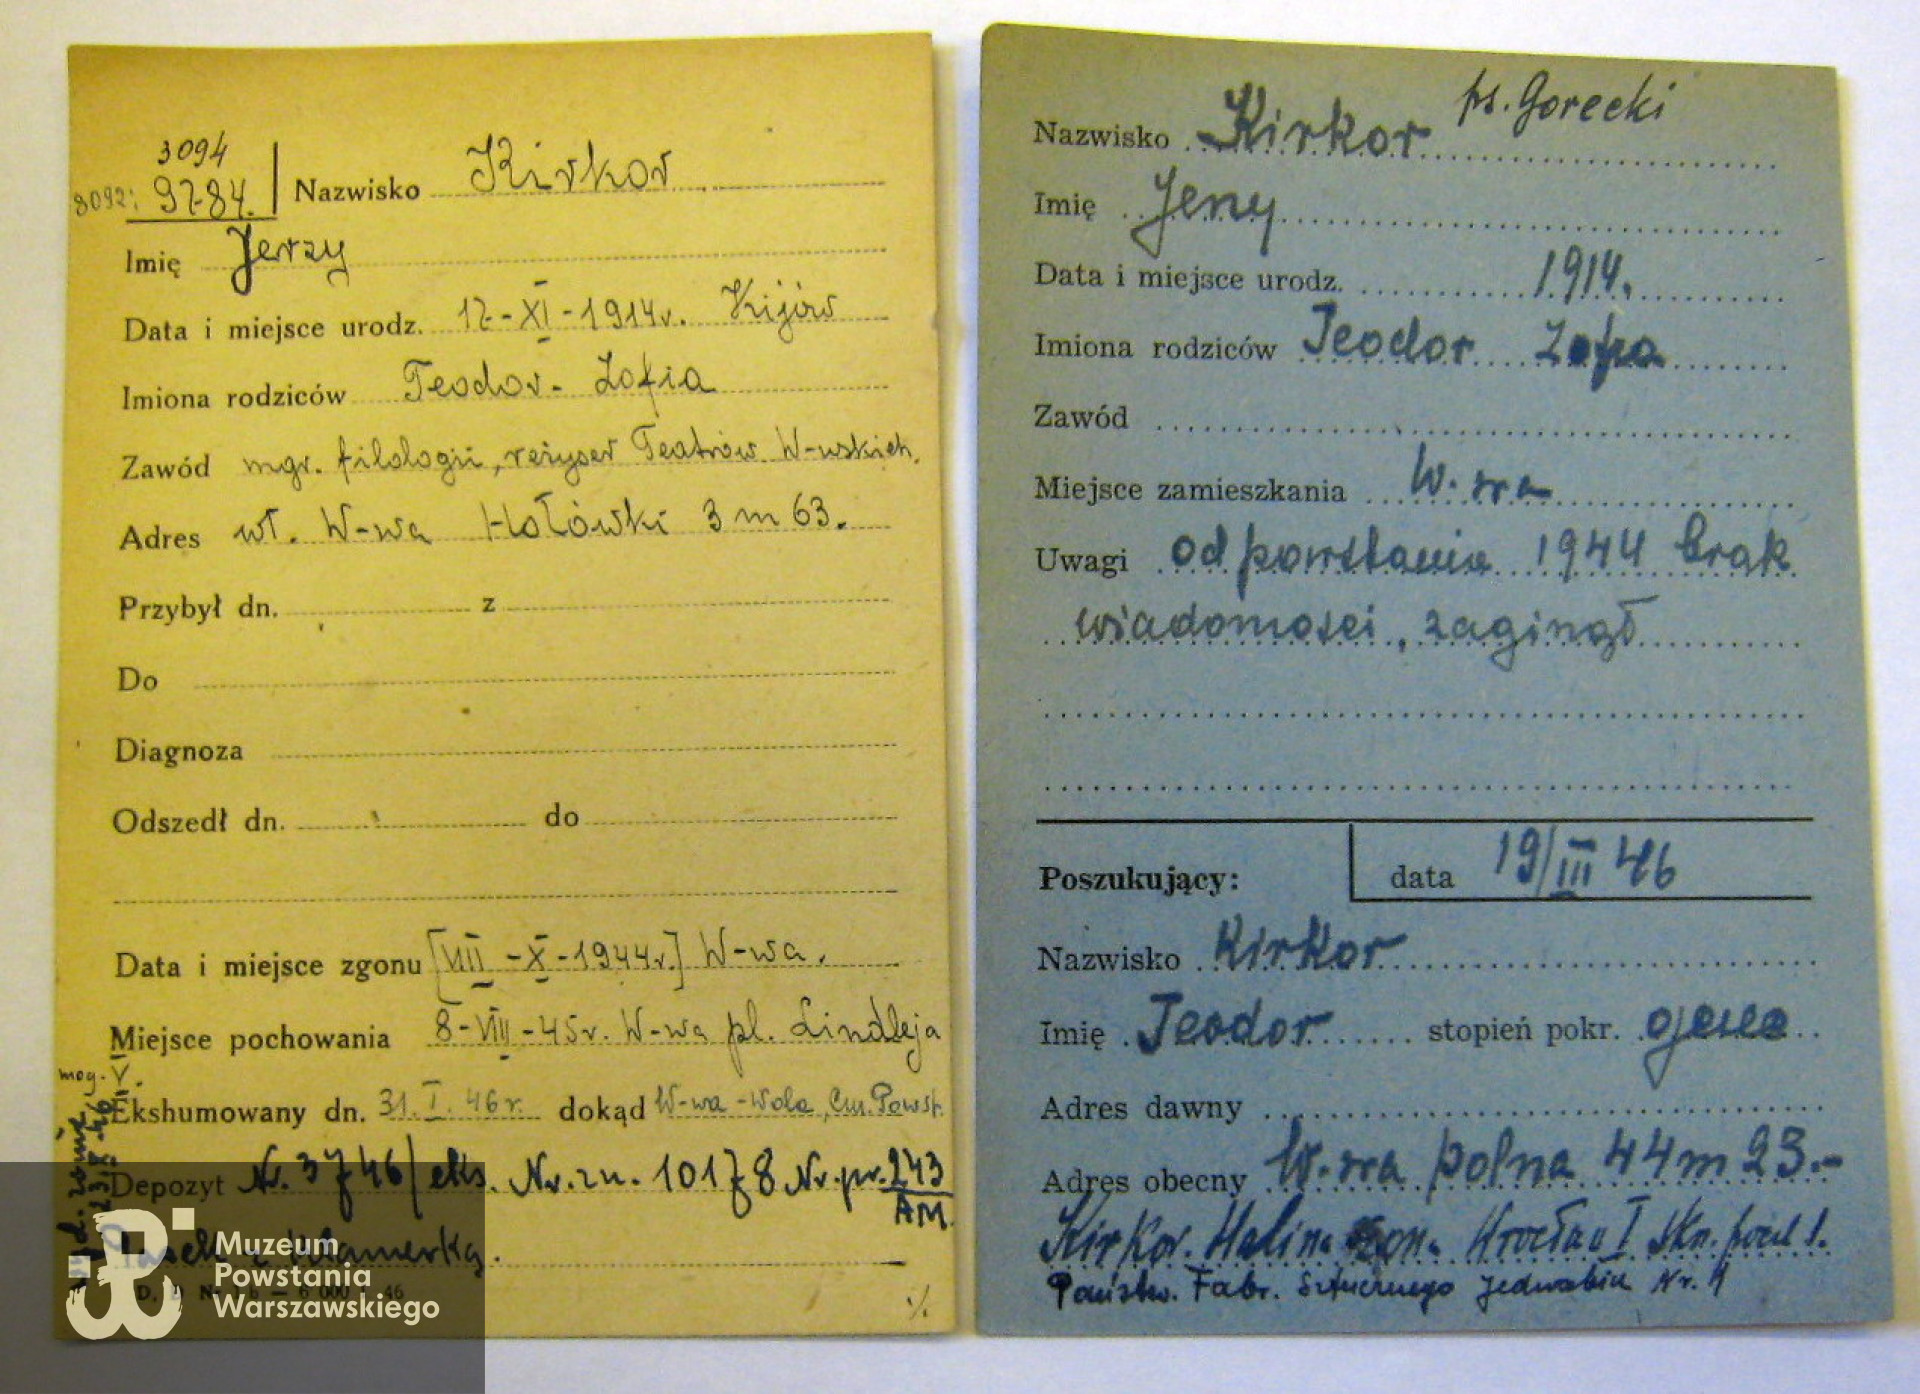 3094
8092; 97-84. Nazwisko Kirkor
Imię Jerzy
Data i miejsce urodz. 17-XI-1914r. Kijów
Imiona rodziców Teodor - Zofia
Zawód mgr. filologii, reżyser Teatrów W-wskich.
Adres wł. W-wa Hołówki 3 m 63.
Przybył dn. z
Do
Diagnoza
Odszedł dn. do
Data i miejsce zgonu [VIII - X - 1944r.] W-wa.
Miejsce pochowania 8-VIII-45r. W-wa pl. Lindleja
mog. V.
Ekshumowany dn. 31. I. 46 r. dokąd W-wa - Wola, Cm. Powst.
Depozyt Nr. 3746/eks. Nr. zn. 10178 Nr. pr. 243
AM.
Pasek z klamerką.
wyd. żonie
Muzeum
Powstania
Warszawskiego
Nazwisko Kirkor ps. Gorecki
Imię Jerzy
Data i miejsce urodz. 1914.
Imiona rodziców Teodor Zofia
Zawód
Miejsce zamieszkania W-wa
Uwagi od powstania 1944 brak
wiadomości, zaginął
Poszukujący: data 19/III 46
Nazwisko Kirkor
Imię Teodor stopień pokr. ojciec
Adres dawny
Adres obecny W-wa polna 44 m 23.-
Kirkor Halina żona Wrocław I Skr. poczt 1.
Państw. Fabr. Sztucznego Jedwabiu Nr. 4